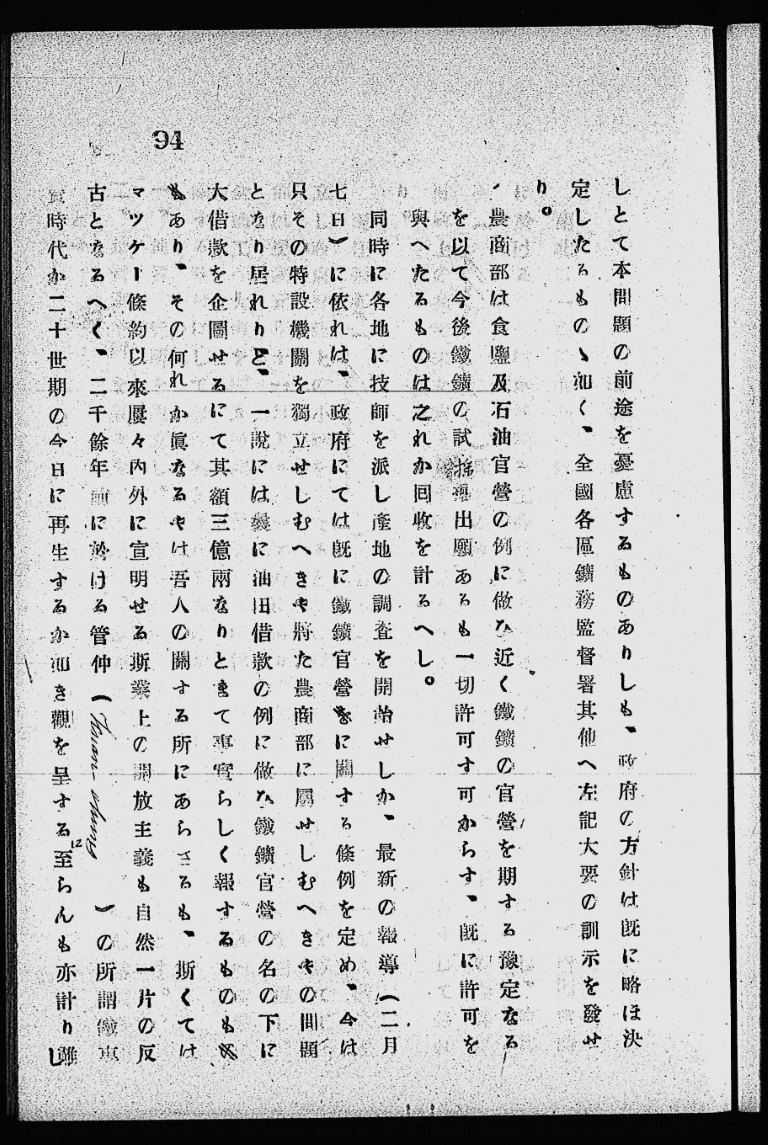 94
しとて本問題の前途を憂慮するものありしも、政府の方針は既に略ほ決
定したるものゝ如く、全國各區鑛務監督署其他へ左記大要の訓示を發せ
り。
農商部は食鹽及石油官營の例に做ひ近く鐵鑛の官營を期する豫定なる
を以て今後鐵鑛の試採 出願あるも一切許可す可からす、既に許可を
與へたるものは之れか回收を計るへし。
同時に各地に技師を派し產地の調査を開始せしか、最新の報導（二月
七日）に依れは、政府にては既に鐵鑛官營に關する條例を定め、今は
只その特設機關を獨立せしむへきや將た農商部に屬せしむへきやの問題
となり居れりと、一說には曩に油田借款の例に做ひ鐵鑛官營の名の下に
大借款を企圖せるにて其額三億兩なりとまて事實らしく報するものも
もあり、その何れか眞なるやは吾人の關する所にあらさるも、斯くては
マツケー條約以來屢々內外に宣明せる斯業上の開放主義も自然一片の反
古となるへく、二千餘年前に於ける管仲（Kuan-chung）の所謂鐵
時代か二十世期の今日に再生するか如き觀を呈する至らんも亦計り難し
に